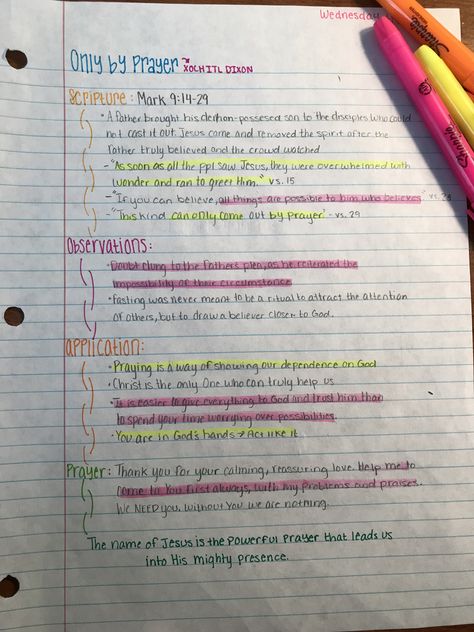 Wednesday
Only by Prayer ~ XOCHITL DIXON
Scripture: Mark 9:14-29
• A father brought his demon-possesed son to the disciples who could
not cast it out. Jesus came and removed the spirit after the
father truly believed and the crowd watched
- "As soon as all the ppl saw Jesus, they were overwhelmed with
wonder and ran to greet Him." vs. 15
- "If you can believe, all things are possible to him who believes" vs. 23
- "This kind can only come out by prayer" - vs. 29
Observations:
• Doubt clung to the fathers plea, as he reiterated the
impossibility of their circumstance
• Fasting was never meant to be a ritual to attract the attention
of others, but to draw a believer closer to God.
application:
• Praying is a way of showing our dependence on God
• Christ is the only One who can truly help us
• It is easier to give everything to God and trust him than
to spend your time worrying over possibilities.
• You are in God's hands → Act like it
Prayer: Thank you for your calming, reassuring love. Help me to
come to You first always, with my problems and praises.
WE NEED you. Without You we are nothing.
The name of Jesus is the powerful prayer that leads us
into His mighty presence.
Sharpie